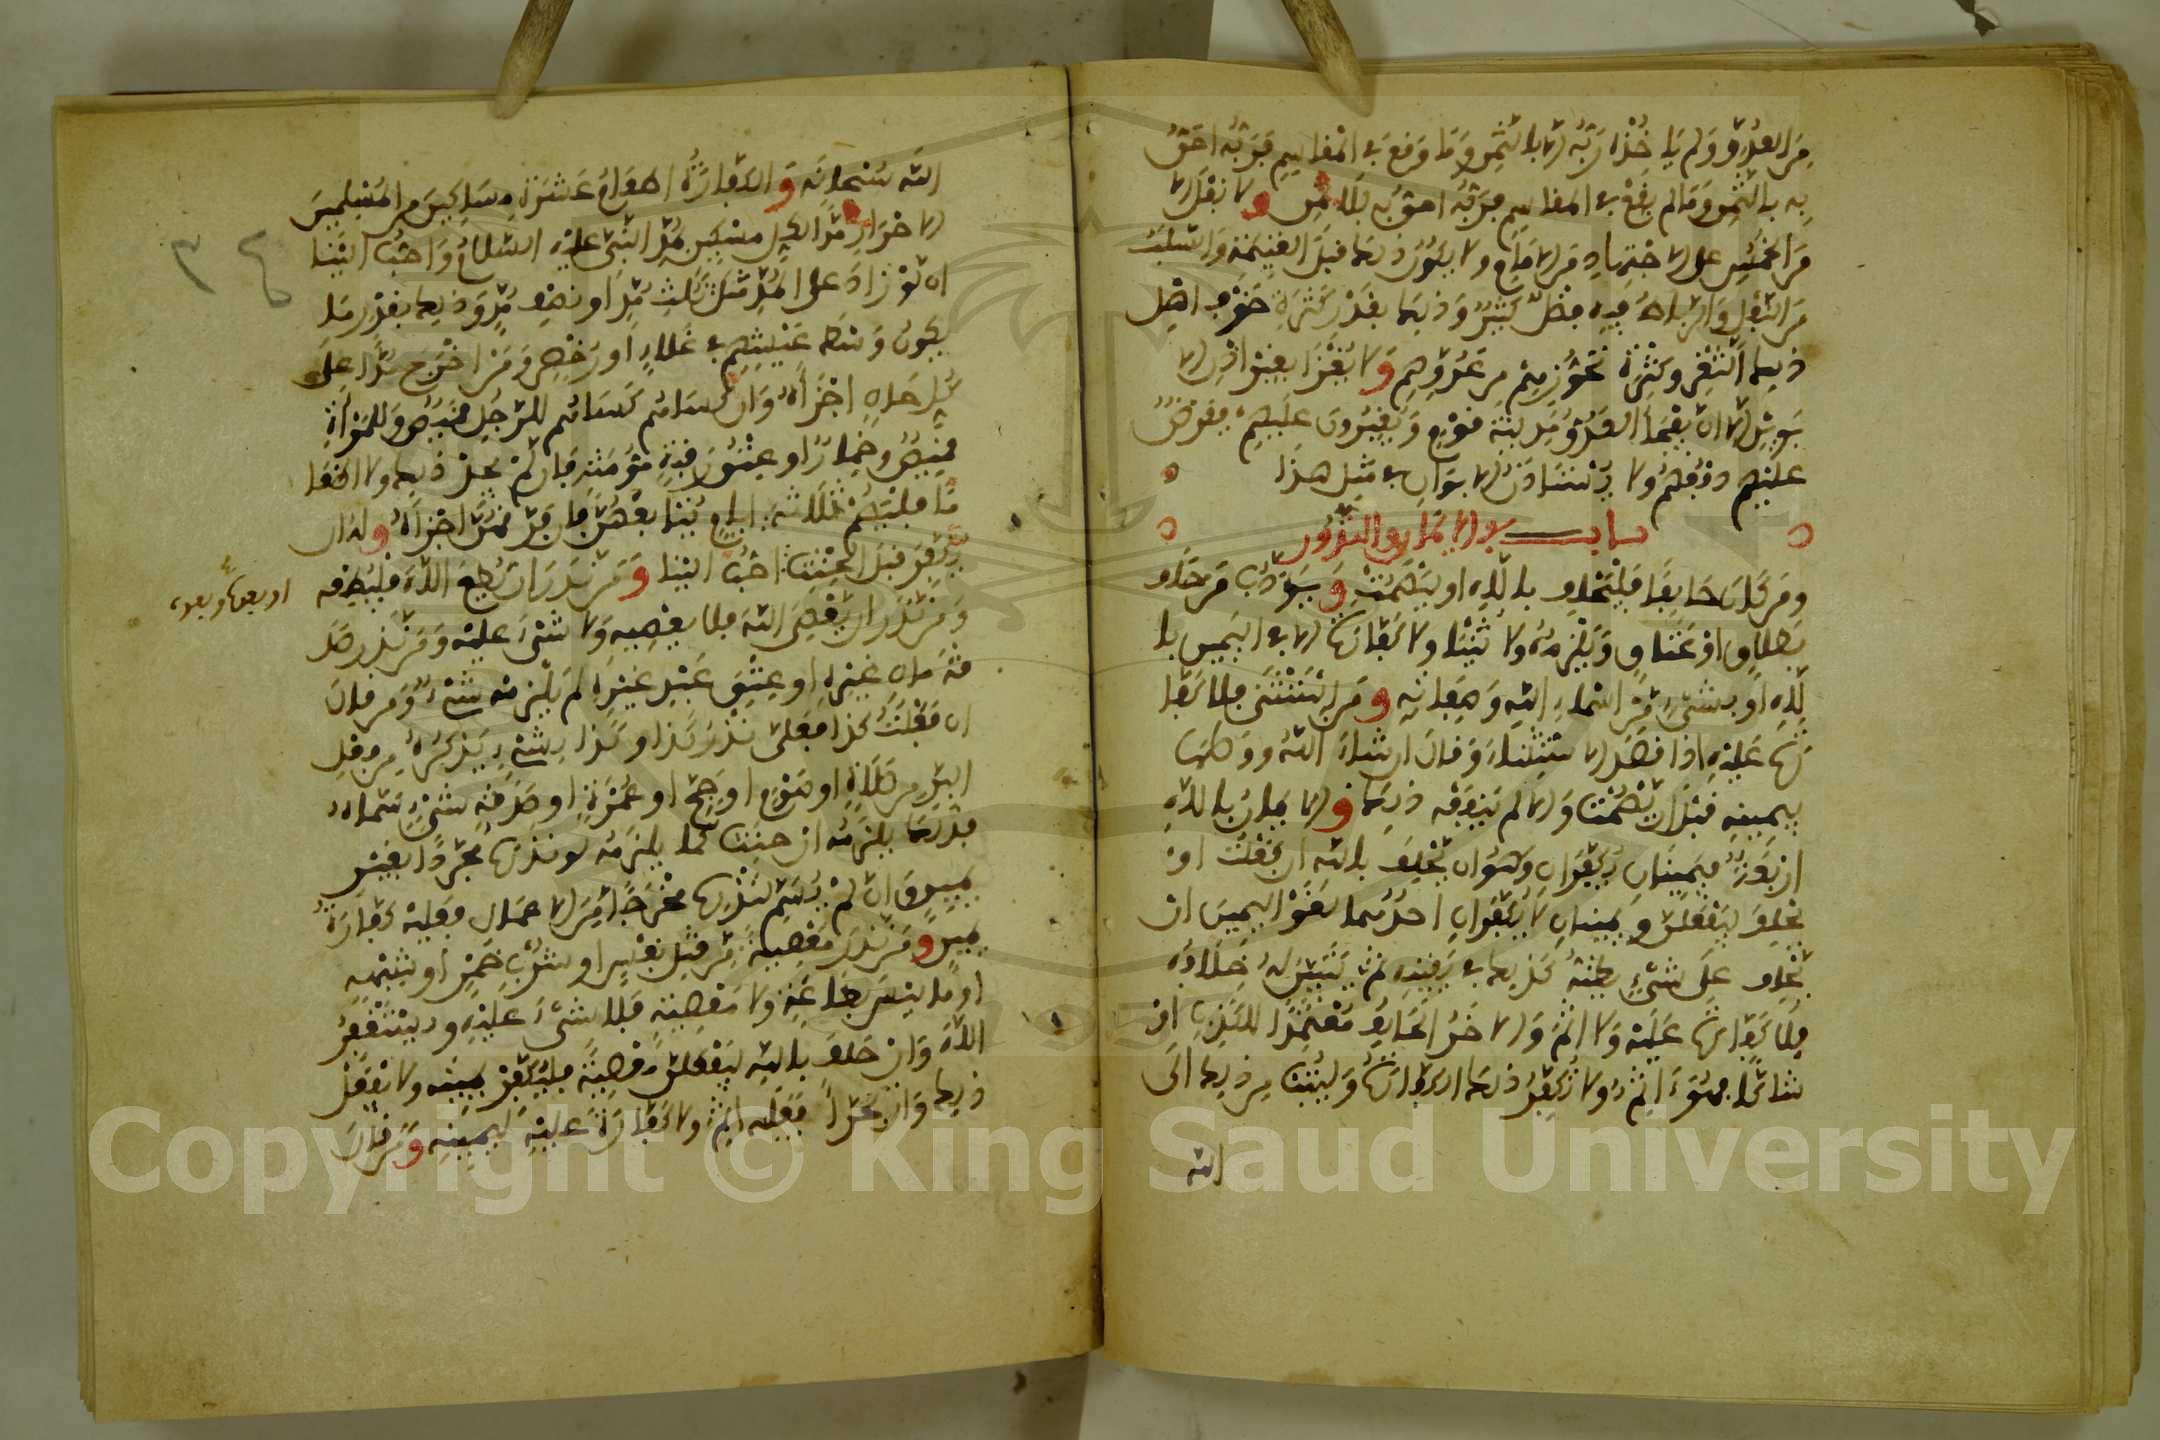 من العدو ولم ياخذه ربه الا بالثمن وما وقع في المقاسم فربه احق
به بالثمن وما لم يقع في المقاسم فربه احق به بلا ثمن ولا نفل الا
من الخمس على الاجتهاد من الامام ولا يكون ذلك قبل الغنيمة والسلب
من النفل والرباط فيه فضل كبير وذلك بقدر كثرة خوف اهل
ذلك الثغر وكثرة تحرزهم من عدوهم ولا يغزا بغير اذن الا
بوين الا ان يفجأ العدو مدينة قوم ويغيرون عليهم ففرض
عليهم دفعهم ولا يستاذن الابوان في مثل هذا
باب في الايمان والنذور
ومن كان حالفا فليحلف بالله او ليصمت ويودب من حلف
بطلاق او عتاق ويلزمه ولا ثنيا ولا كفارة الا في اليمين با
لله او بشيء من اسماء الله وصفاته ومن استثنى فلا كفا
رة عليه اذا قصد الاستثناء وقال ان شاء الله ووصلها
بيمينه قبل ان يصمت والا لم ينفعه ذلك والايمان بالله
اربعة فيمينان يكفران وهو ان يحلف بالله ان فعلت او
يحلف ليفعلن ويمينان لا يكفران احدهما لغو اليمين ان
يحلف على شيء يظنه كذلك في يقينه ثم يتبين له خلافه
فلا كفارة عليه ولا اثم والاخر الحالف متعمدا للكذب او
شاكا فهو اثم ولا تكفر ذلك الكفارة وليتب من ذلك الى
الله
الله سبحانه والكفارة اطعام عشرة مساكين من المسلمين
الاحرار مدا لكل مسكين بمد النبي عليه السلام واحب الينا
ان لو زاد على المد مثل ثلث مد او نصف مد وذلك بقدر ما
يكون وسط عيشهم في غلاء او رخص ومن اخرج مدا على
كل حال اجزأه وان كساهم كساهم للرجل قميص وللمرأة
قميص وخمار او عتق رقبة مؤمنة فان لم يجد ذلك ولا اطعا
ما فليصم ثلاثة ايام يتابعهن فان فرقهن اجزأه وله ان
يكفر قبل الحنث احب الينا ومن نذر ان يطيع الله فليطعه
او بعده وبعد
ومن نذر ان يعصي الله فلا يعصيه ولا شيء عليه ومن نذر صد
قة مال غيره او عتق عبد غيره لم يلزمه شيء ومن قال
ان فعلت كذا فعلي نذر كذا وكذا بشيء يذكره من فعل
البر من صلاة او صوم او حج او عمرة او صدقة شيء سماه
فذلك يلزمه ان حنث كما يلزمه لو نذره مجردا بغير
يمين وان لم يسم لنذره مخرجا من الاعمال فعليه كفارة
يمين ومن نذر معصية من قتل نفس او شرب خمر او شبهه
او ما ليس بطاعة ولا معصية فلا شيء عليه وليستغفر
الله وان حلف بالله ليفعلن معصية فليكفر يمينه ولا يفعل
ذلك وان تجرأ ففعله اثم ولا كفارة عليه ليمينه ومن قال
٣٤
Copyright © King Saud University